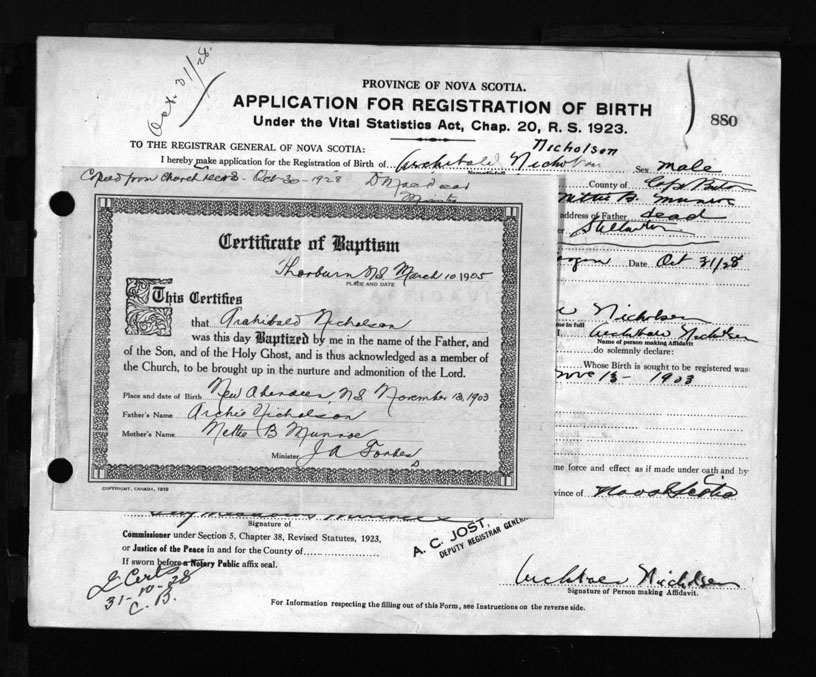 Oct. 31/28
PROVINCE OF NOVA SCOTIA.
APPLICATION FOR REGISTRATION OF BIRTH
Under the Vital Statistics Act, Chap. 20, R. S. 1923.
880
TO THE REGISTRAR GENERAL OF NOVA SCOTIA:
Nicholson
I hereby make application for the Registration of Birth of Archibald Nicholson Sex male
Copied from Church records Oct 30-1928
County of Cape Breton
Nettie B. Munroe
address of Father dead
Stellarton
Date Oct 31/28
Certificate of Baptism
Thorburn NS March 10 1905
PLACE AND DATE
This Certifies
that Archibald Nicholson
was this day Baptized by me in the name of the Father, and
of the Son, and of the Holy Ghost, and is thus acknowledged as a member of
the Church, to be brought up in the nurture and admonition of the Lord.
Place and date of Birth New Aberdeen, NS November 13, 1903
Father's Name Archie Nicholson
Mother's Name Nettie B Munroe
Minister J A Forbes
COPYRIGHT, CANADA, 1918
Nicholson
me in full
Archibald Nicholson
Name of person making Affidavit
do solemnly declare:
Whose Birth is sought to be registered was
13- 1903
me force and effect as if made under oath and by
vince of Nova Scotia
Signature of
Commissioner under Section 5, Chapter 38, Revised Statutes, 1923,
or Justice of the Peace in and for the County of
If sworn before a Notary Public affix seal.
A. C. JOST,
DEPUTY REGISTRAR GENERAL
31-10-28
C. B.
Archibald Nicholson
Signature of Person making Affidavit.
For Information respecting the filling out of this Form, see Instructions on the reverse side.